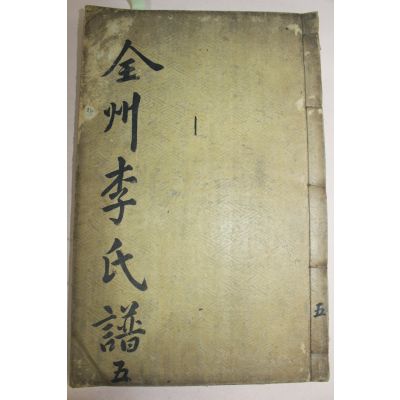 全州李氏譜 五
五